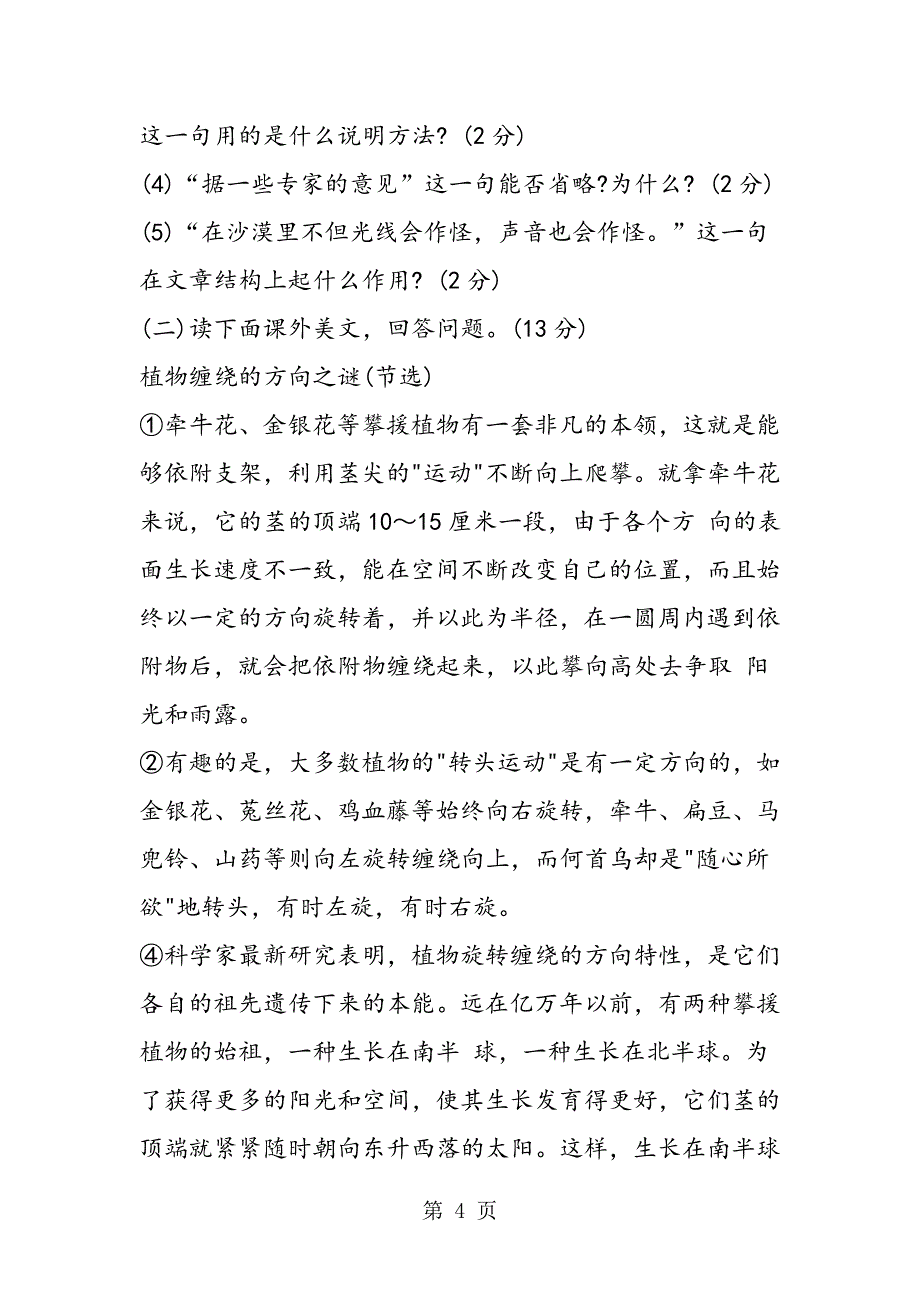 这一句用的是什么说明方法? (2分)
(4)“据一些专家的意见”这一句能否省略?为什么? (2分)
(5)“在沙漠里不但光线会作怪，声音也会作怪。”这一句
在文章结构上起什么作用? (2分)
(二)读下面课外美文，回答问题。(13分)
植物缠绕的方向之谜(节选)
①牵牛花、金银花等攀援植物有一套非凡的本领，这就是能
够依附支架，利用茎尖的"运动"不断向上爬攀。就拿牵牛花
来说，它的茎的顶端10～15厘米一段，由于各个方 向的表
面生长速度不一致，能在空间不断改变自己的位置，而且始
终以一定的方向旋转着，并以此为半径，在一圆周内遇到依
附物后，就会把依附物缠绕起来，以此攀向高处去争取 阳
光和雨露。
②有趣的是，大多数植物的"转头运动"是有一定方向的，如
金银花、菟丝花、鸡血藤等始终向右旋转，牵牛、扁豆、马
兜铃、山药等则向左旋转缠绕向上，而何首乌却是"随心所
欲"地转头，有时左旋，有时右旋。
④科学家最新研究表明，植物旋转缠绕的方向特性，是它们
各自的祖先遗传下来的本能。远在亿万年以前，有两种攀援
植物的始祖，一种生长在南半 球，一种生长在北半球。为
了获得更多的阳光和空间，使其生长发育得更好，它们茎的
顶端就紧紧随时朝向东升西落的太阳。这样，生长在南半球
第 4 页